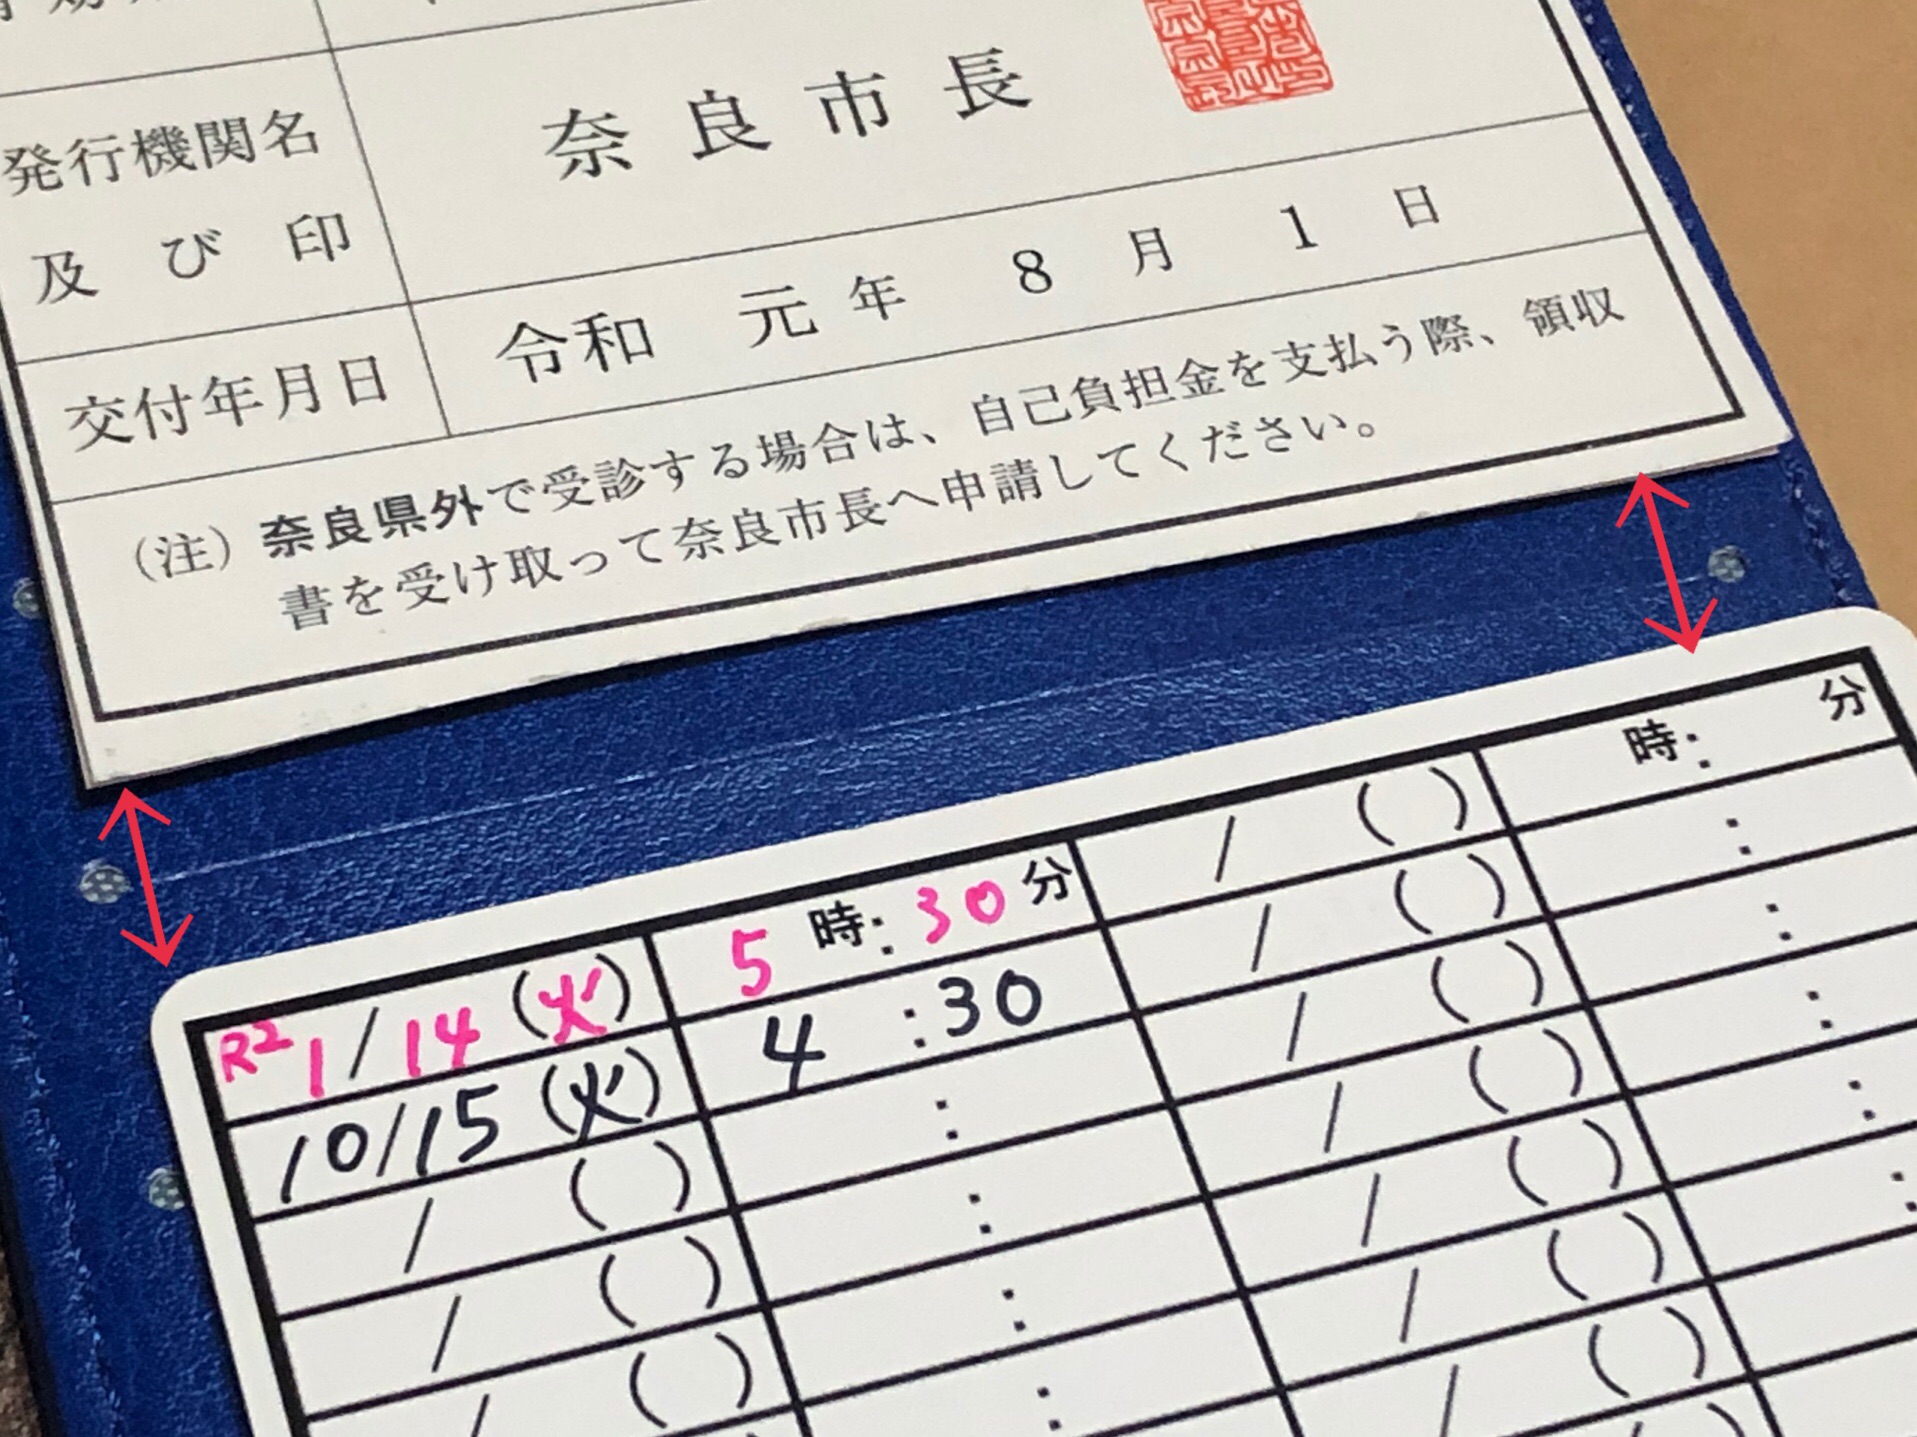 発行機関名
及び印
奈良市長
交付年月日
令和 元年 8月 1日
(注) 奈良県外で受診する場合は、自己負担金を支払う際、領収
書を受け取って奈良市長へ申請してください。
R2 1/14 (火) 5時:30分 / ( ) 時: 分
10/15 (火) 4:30 / ( ) :
/ ( ) : / ( ) :
/ ( ) : / ( ) :
/ ( ) : / ( ) :